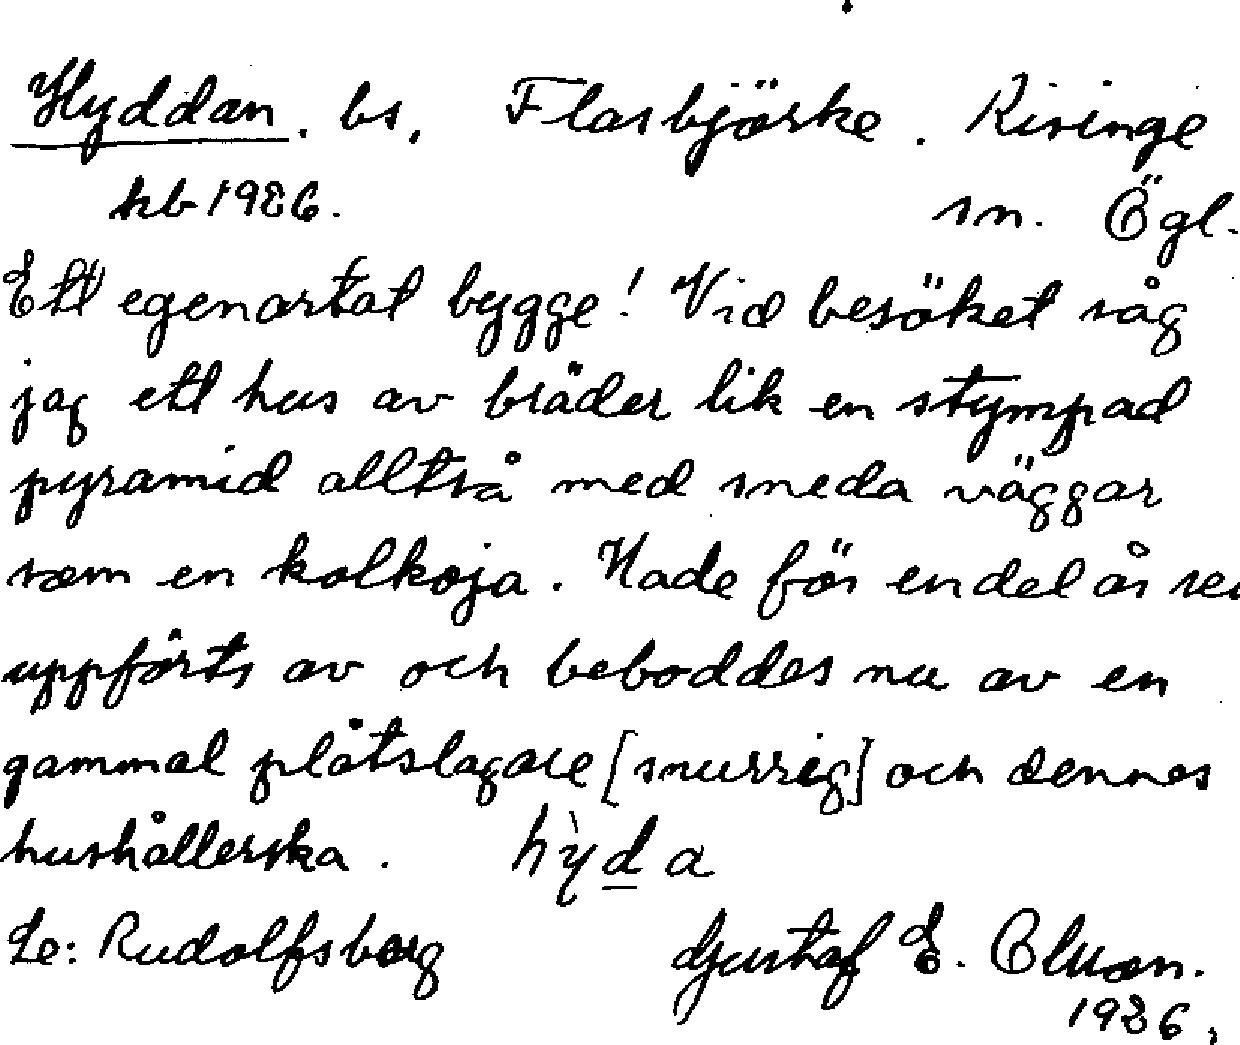 Hyddan. bs, Flasbjörke. Risinge
hb 1936. sn. Ögl.
Ett egenartat bygge! Vid besöket såg
jag ett hus av bräder lik en stympad
pyramid alltså med sneda väggar
som en kolkoja. Hade för en del år sen
uppförts av och beboddes nu av en
gammal plåtslagare [snurrig] och dennes
hushållerska. hỳda
Se: Rudolfsborg Gustaf E.
1936.